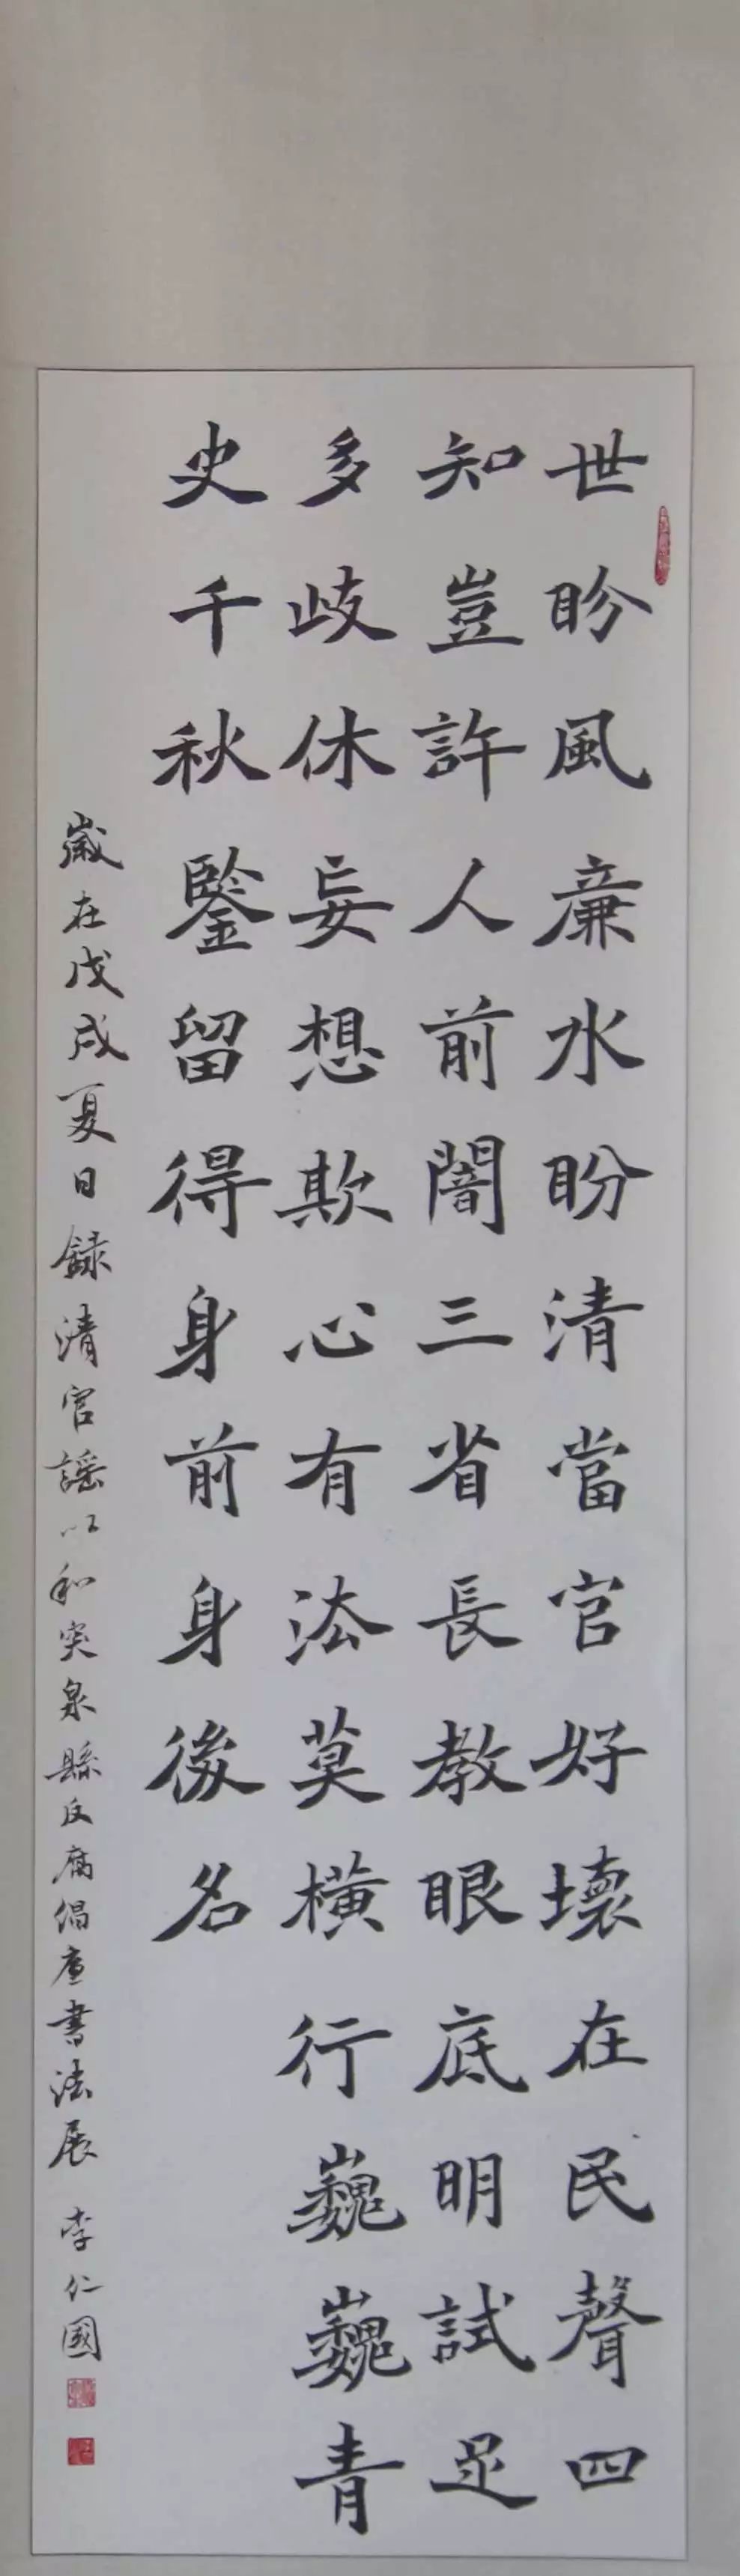 世盼風廉水盼清當官好壞在民聲四
知豈許人前闇三省長教眼底明試足
多歧休妄想欺心有法莫橫行巍巍青
史千秋鑒留得身前身後名
歲在戊戌夏日錄清官謠以和突泉縣反腐倡廉書法展 李仁國